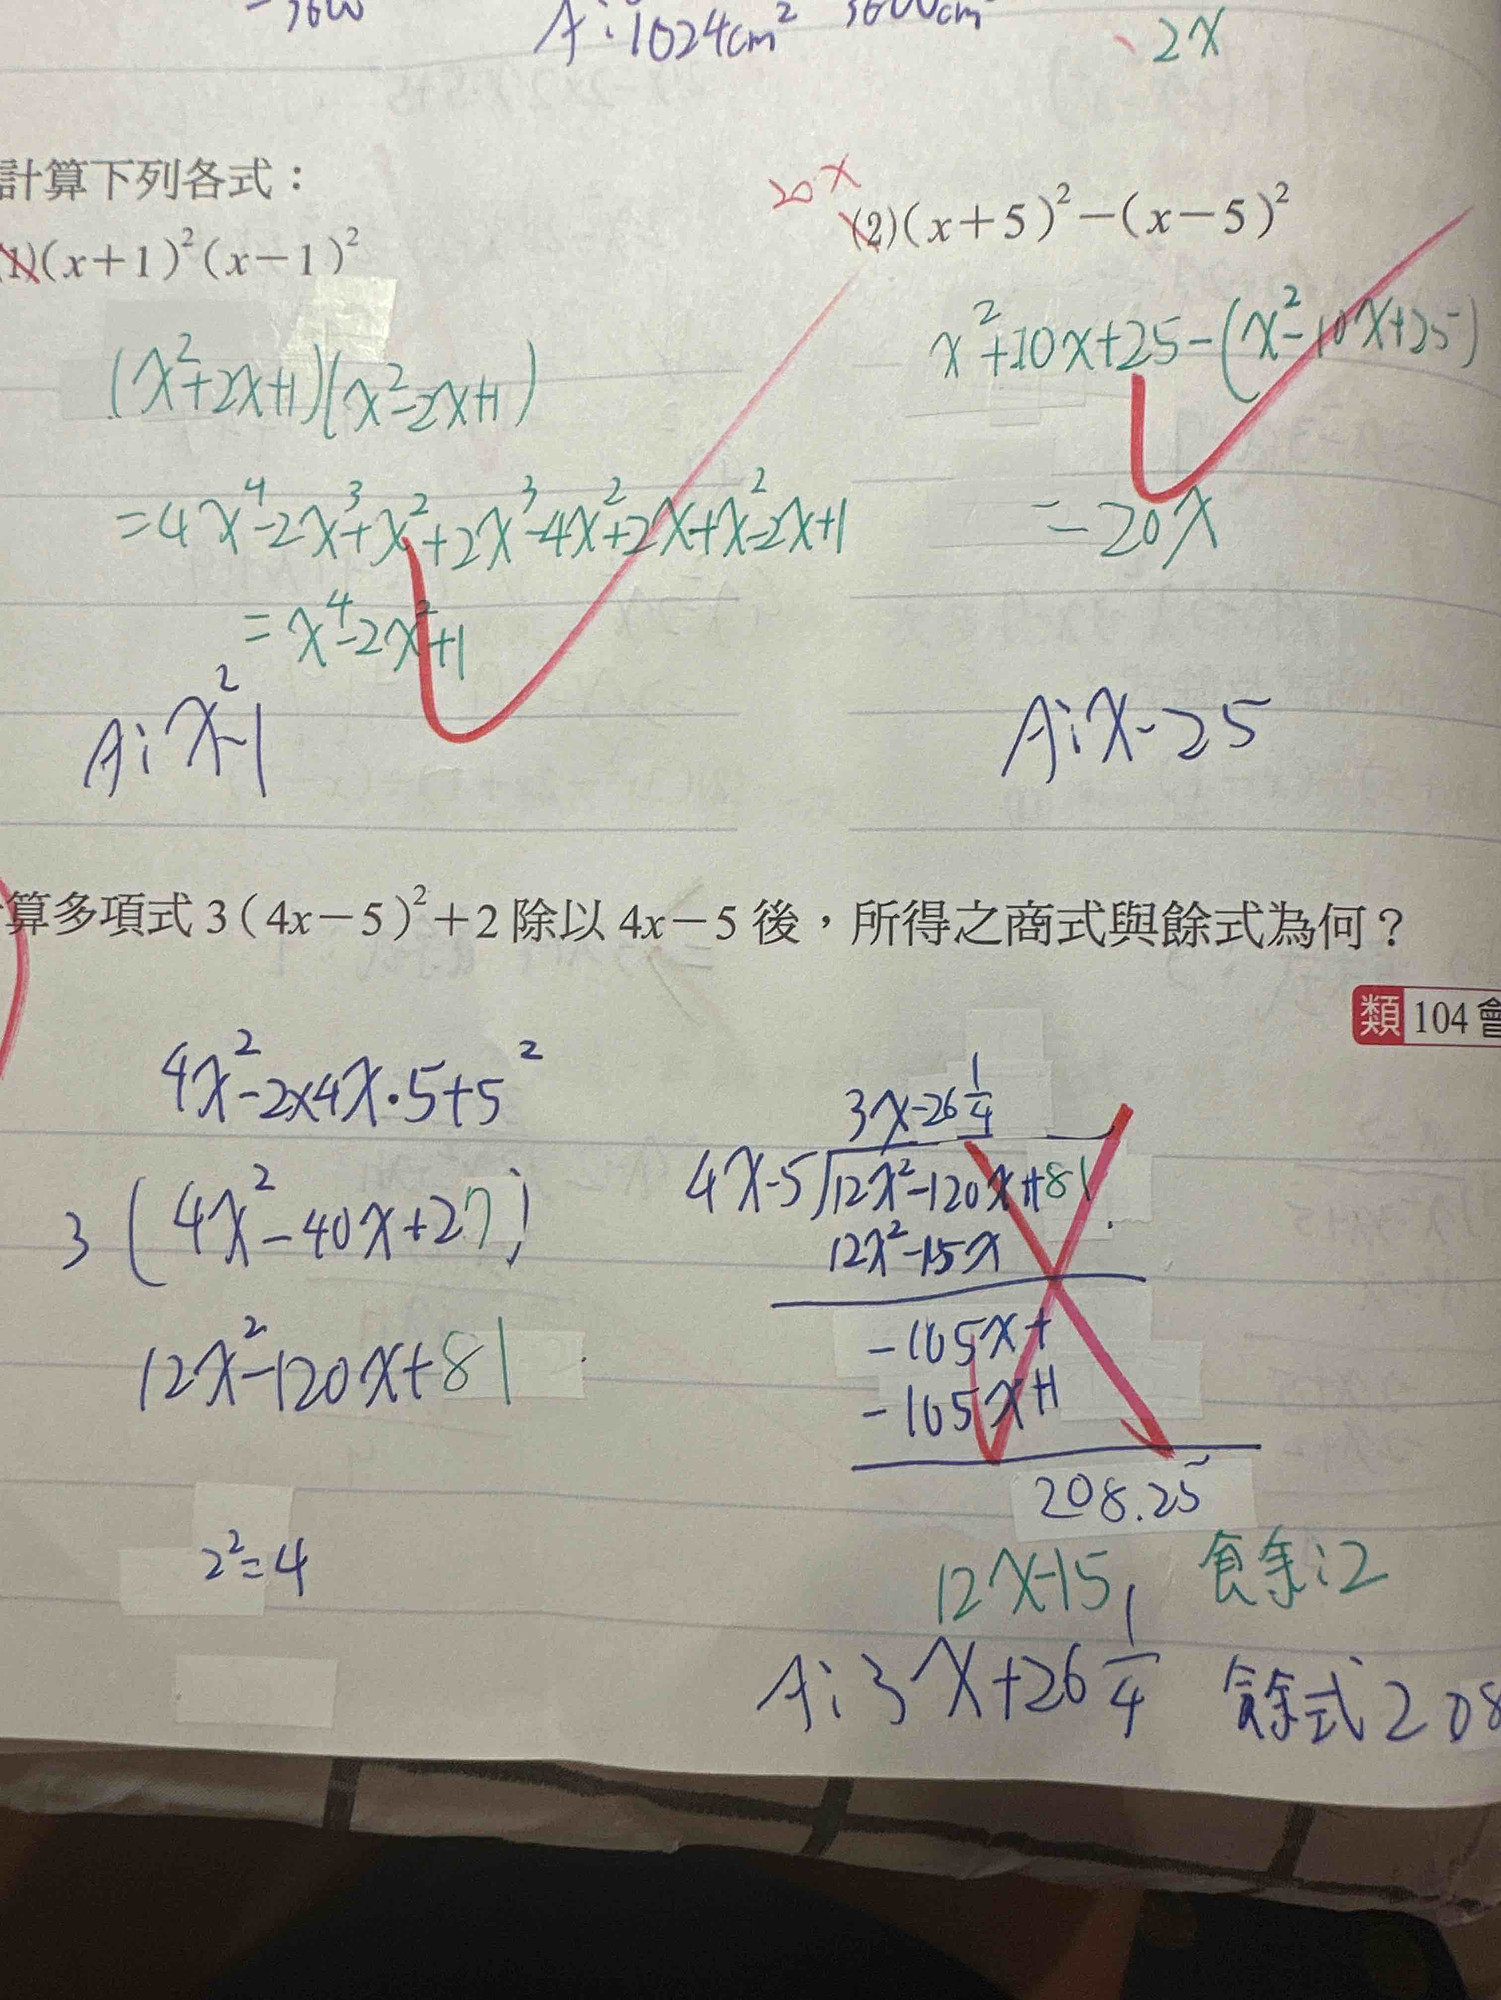 A:1024cm² 3600cm²
2x
計算下列各式：
(1)(x+1)²(x-1)²
20x
(2)(x+5)²-(x-5)²
(x²+2x+1)(x²-2x+1)
=4x⁴-2x³+x²+2x³-4x²+2x+x²-2x+1
=x⁴-2x²+1
A:x²-1
x²+10x+25-(x²-10x+25)
=-20x
A:x-25
算多項式3(4x-5)²+2除以4x-5後，所得之商式與餘式為何？
類 104會
4x²-2×4x·5+5²
3(4x²-40x+27)
12x²-120x+81
2²=4
3x-26 1/4
4x-5 12x²-120x+81
12x²-15x
-105x+
-105x+1
208.25
12x-15, 餘:2
A:3x+26 1/4 餘式208